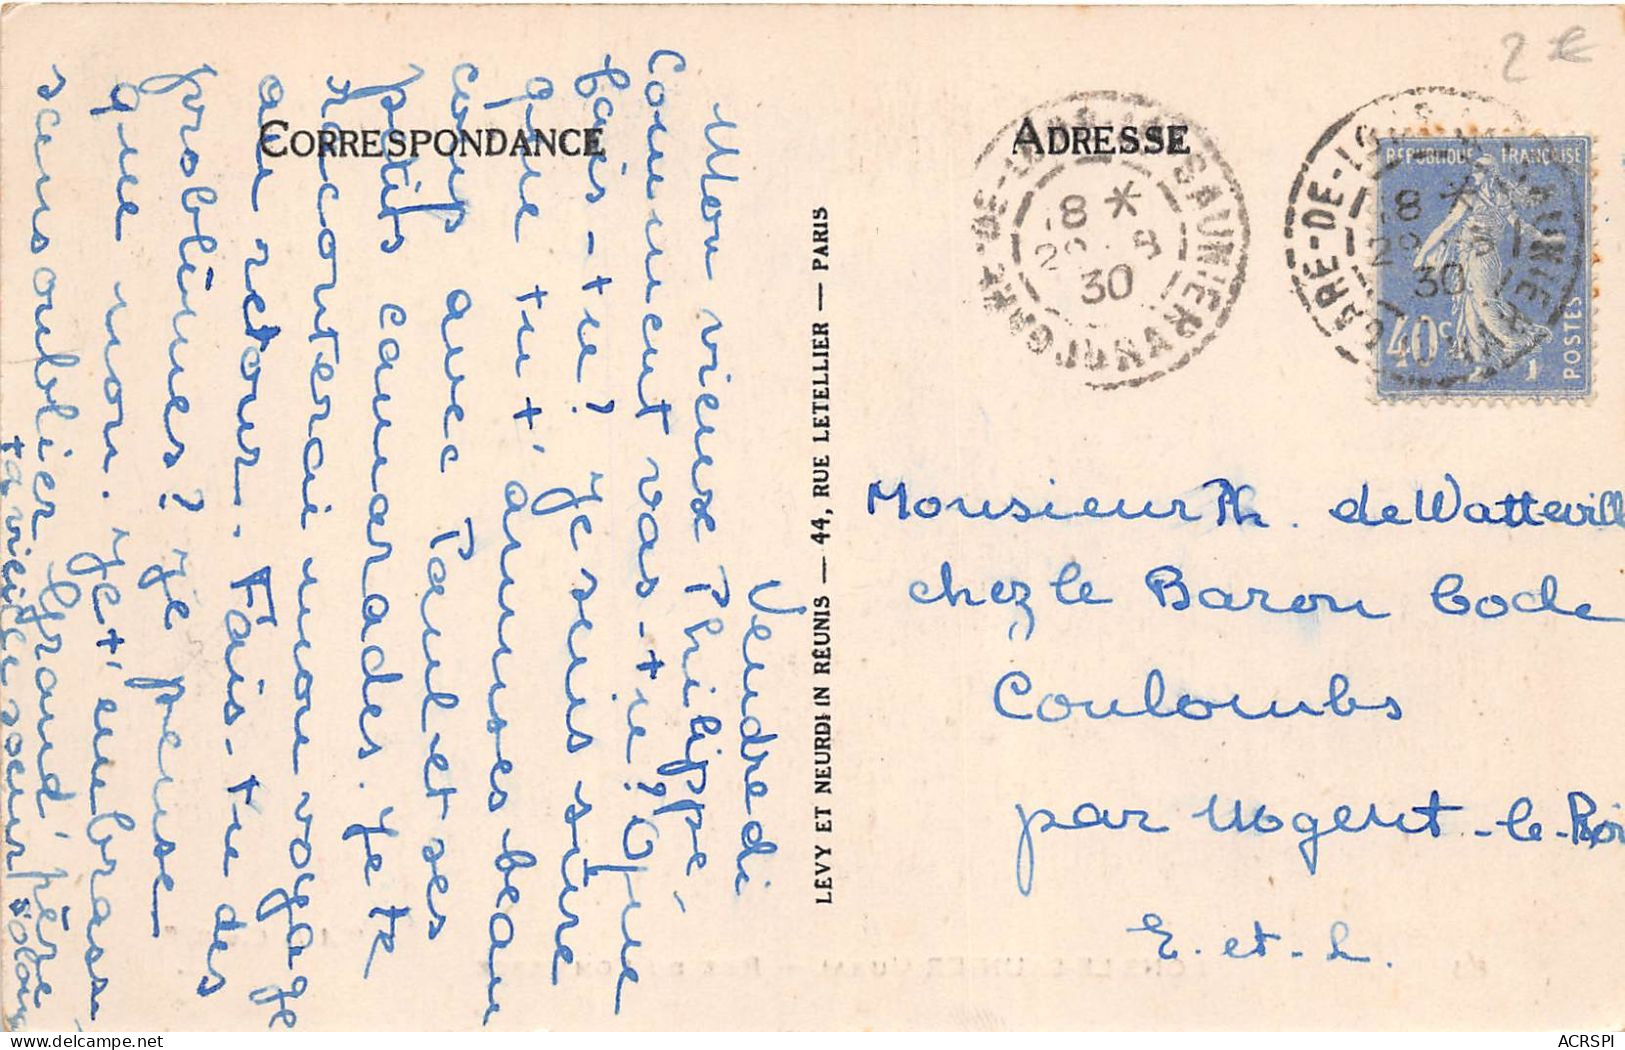 2 €
CORRESPONDANCE
ADRESSE
Vendredi
Mon vieux Philippe,
Comment vas-tu? Que
fais-tu? Je suis sûre
que tu t'amuses beau
coup avec Paul et ses
petits camarades. Je te
raconterai mon voyage
au retour. Fais-tu des
problèmes? Je pense
que non. Je t'embrasse
sans oublier Grand'père
ta vieille soeur
LEVY ET NEURDEIN RÉUNIS — 44, RUE LETELLIER — PARIS
18 *
29 -8
30
18 *
29 -8
30
RÉPUBLIQUE FRANÇAISE
40c
POSTES
Monsieur Ph. de Watteville
chez le Baron
Coulombs
par Nogent-le-Roi
E.-et-L.
ACRSPI